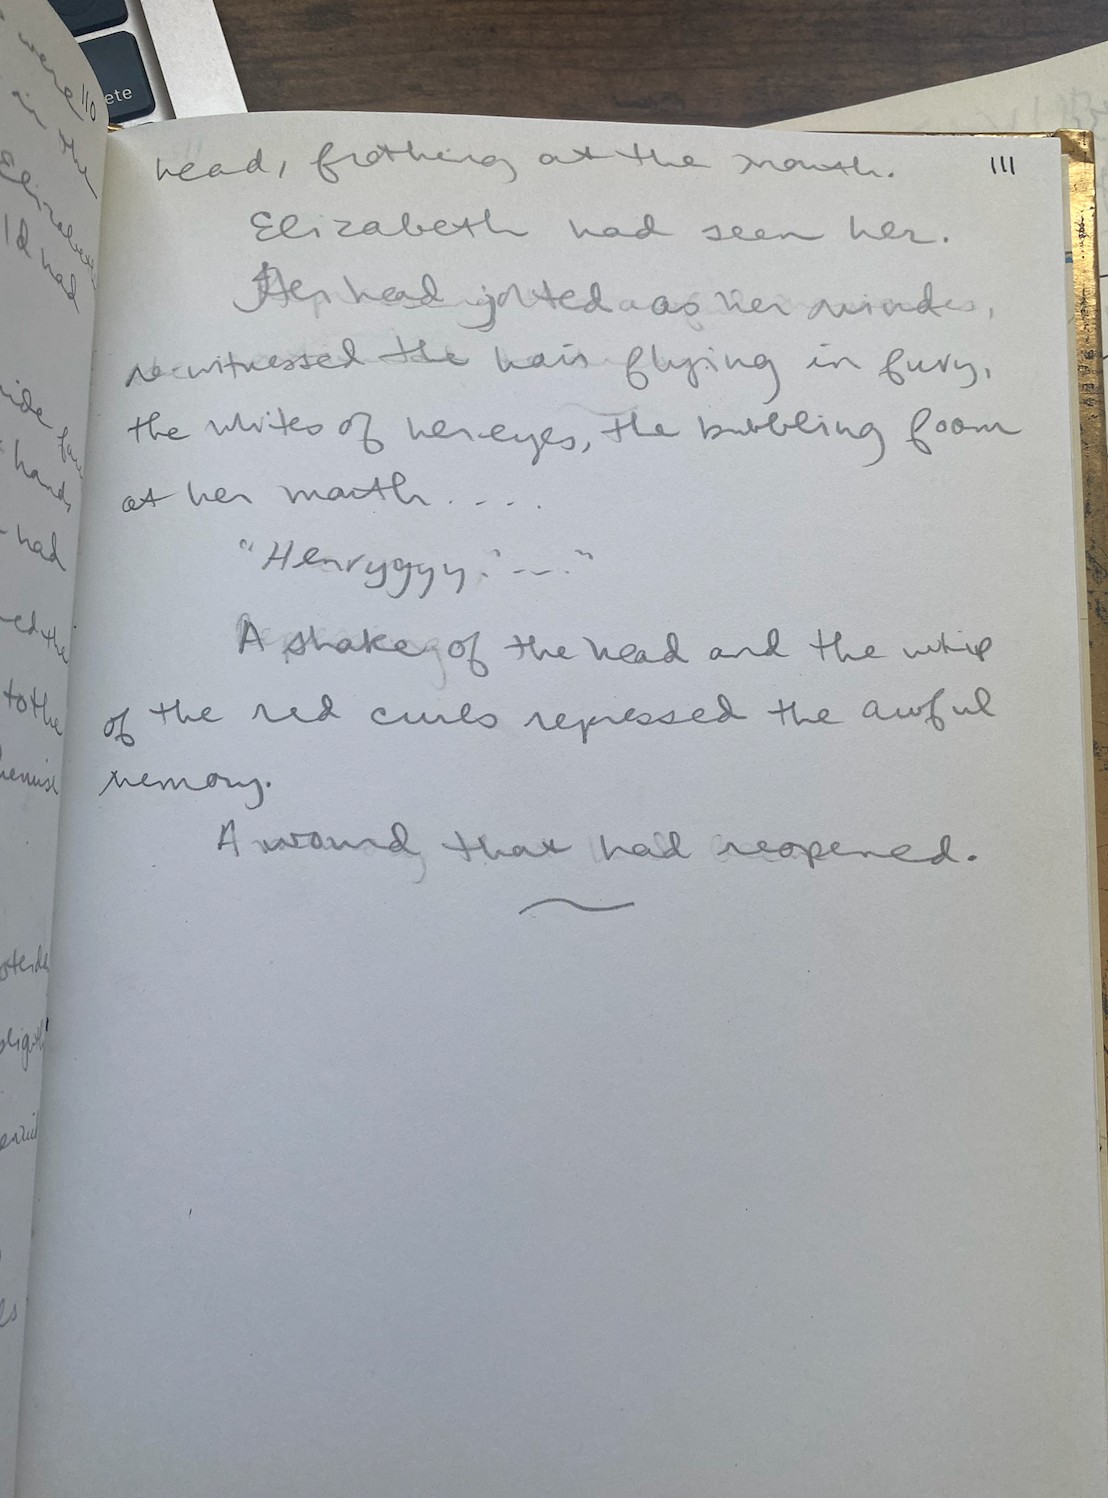 ete
110
were
in the
Elizabeth
ld had
hands
had
ed the
to the
111
head, frothing at the mouth.
Elizabeth had seen her.
Her head jolted as her mind
re-witnessed the hair flying in fury,
the whites of her eyes, the bubbling foam
at her mouth ....
"Henryyyy ...."
A shake of the head and the whip
of the red curls repressed the awful
memory.
A wound that had reopened.